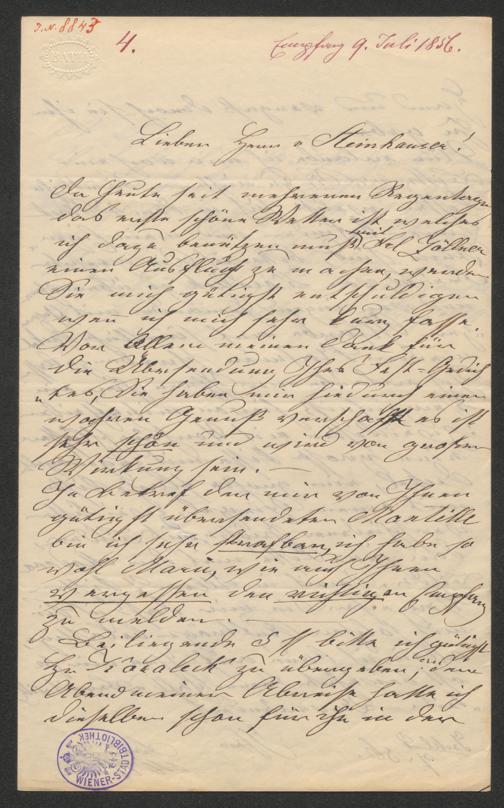 J.N. 8843
4.
Empfang 9. Juli 1856.
Lieber Herr v Steinhauser!
Da heute seit mehreren Regentagen
das erste schöne Wetter ist welches
ich dazu benützen muß, mit Frl Zöllner
einen Ausflug zu machen, werden
Sie mich gütigst entschuldigen
wen ich mich sehr kurz fasse.
Vor Allem meinen Dank für
die Übersendung Ihres Fest-Gedich
"tes, Sie haben mir hiedurch einen
wahren Genuß verschafft es ist
sehr schön und wird von großer
Wirkung sein. —
In Betref der mir von Ihnen
gütigst übersendeten Mantille
bin ich sehr strafbar, ich habe so
wohl Marie, wie auch Ihnen
vergessen den richtigen Empfang
zu melden. —
Beiliegende 5 fl bitte ich gütigst
zu übergeben, den
Abend meiner Abreise hatte ich
dieselben schon für ihn in der
WIENER-STADTBIBLIOTHEK